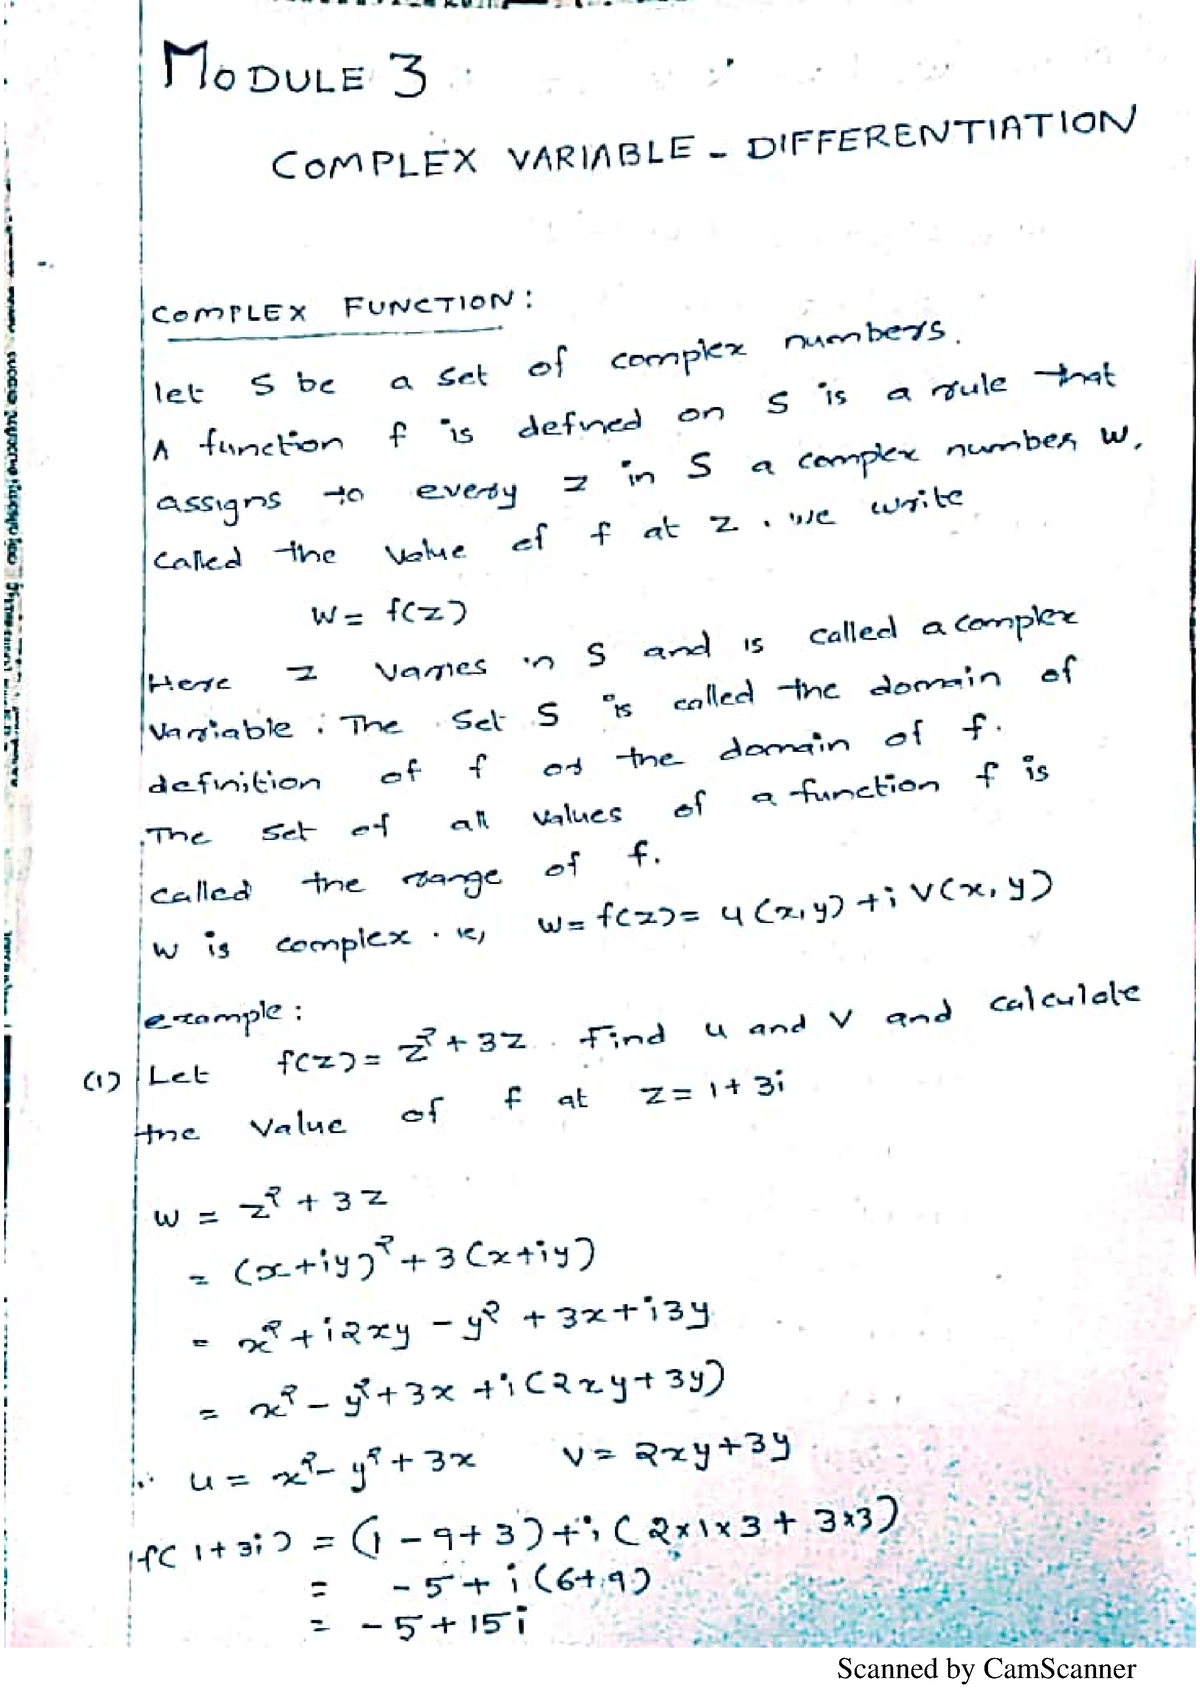 MODULE 3
COMPLEX VARIABLE - DIFFERENTIATION
COMPLEX FUNCTION:
let S be a set of complex numbers.
A function f is defined on S is a rule that
assigns to every z in S a complex number w,
called the value of f at z. we write
w = f(z)
Here z varies in S and is called a complex
variable. The set S is called the domain of
definition of f or the domain of f.
The set of all values of a function f is
called the range of f.
w is complex. ie, w = f(z) = u(x,y) + i v(x,y)
example:
(1) Let f(z) = z² + 3z. Find u and v and calculate
the value of f at z = 1 + 3i
w = z² + 3z
= (x+iy)² + 3(x+iy)
= x² + i2xy - y² + 3x + i3y
= x² - y² + 3x + i(2xy + 3y)
∴ u = x² - y² + 3x v = 2xy + 3y
f(1+3i) = (1 - 9 + 3) + i(2×1×3 + 3×3)
= -5 + i(6+9)
= -5 + 15i
Scanned by CamScanner